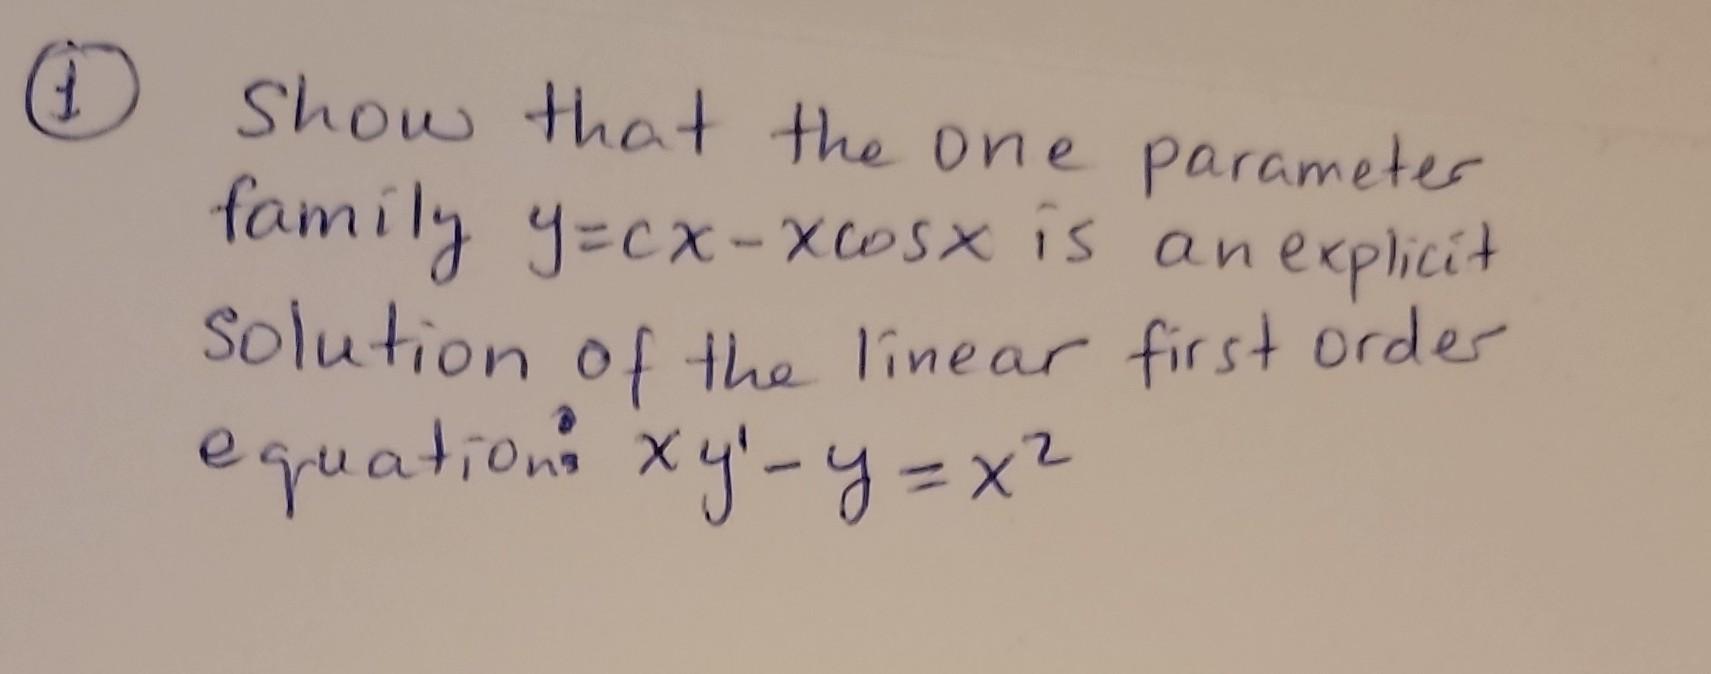 ① Show that the one parameter
family y=cx-xcosx is an explicit
solution of the linear first order
equation: xy'-y=x²